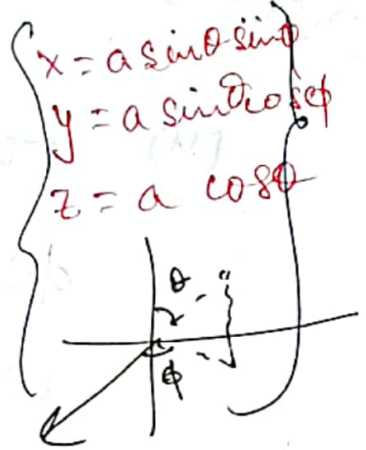 x = a sinθ sinϕ
y = a sinθ cosϕ
z = a cosθ
θ
ϕ